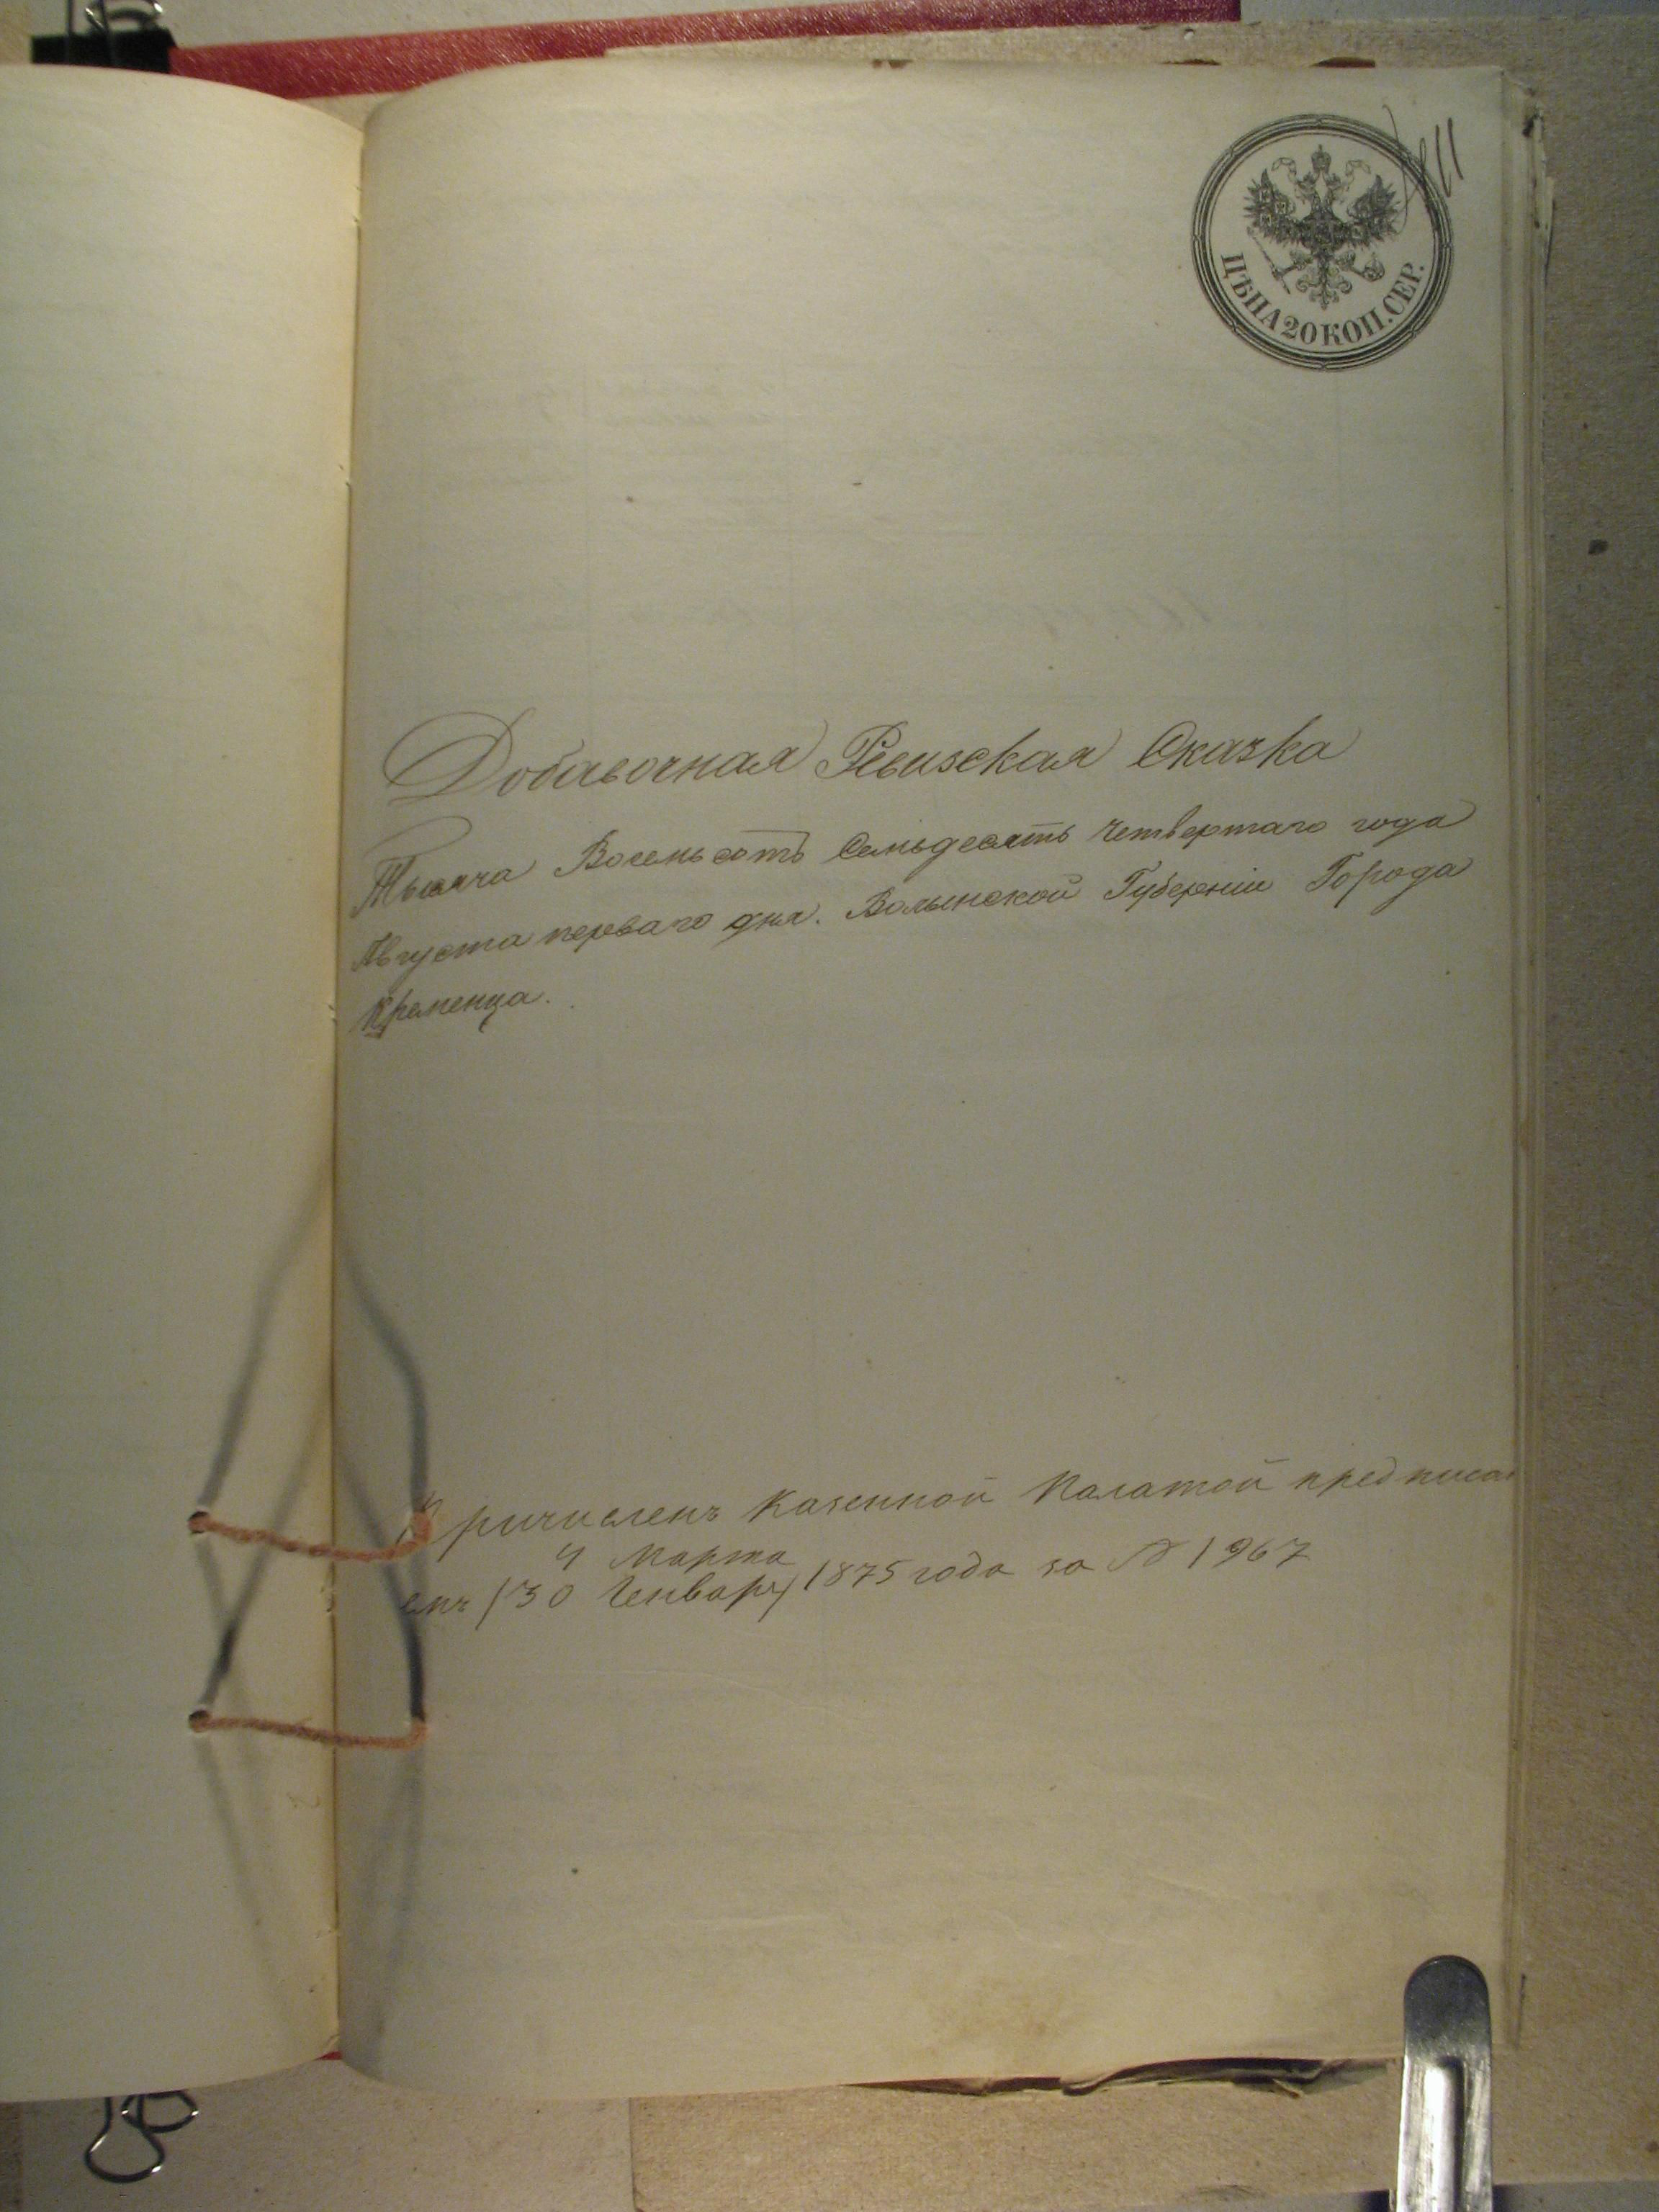 ЦѢНА 20 КОП. СЕР.
Добавочная Ревизская Сказка
Тысяча Восемьсотъ Семьдесятъ Четвертаго года
Августа перваго дня. Волынской Губерніи Города
Кременца.
Причисленъ Казенной Палатой предписа
4 Марта
емъ (30 Генваря) 1875 года за № 1967